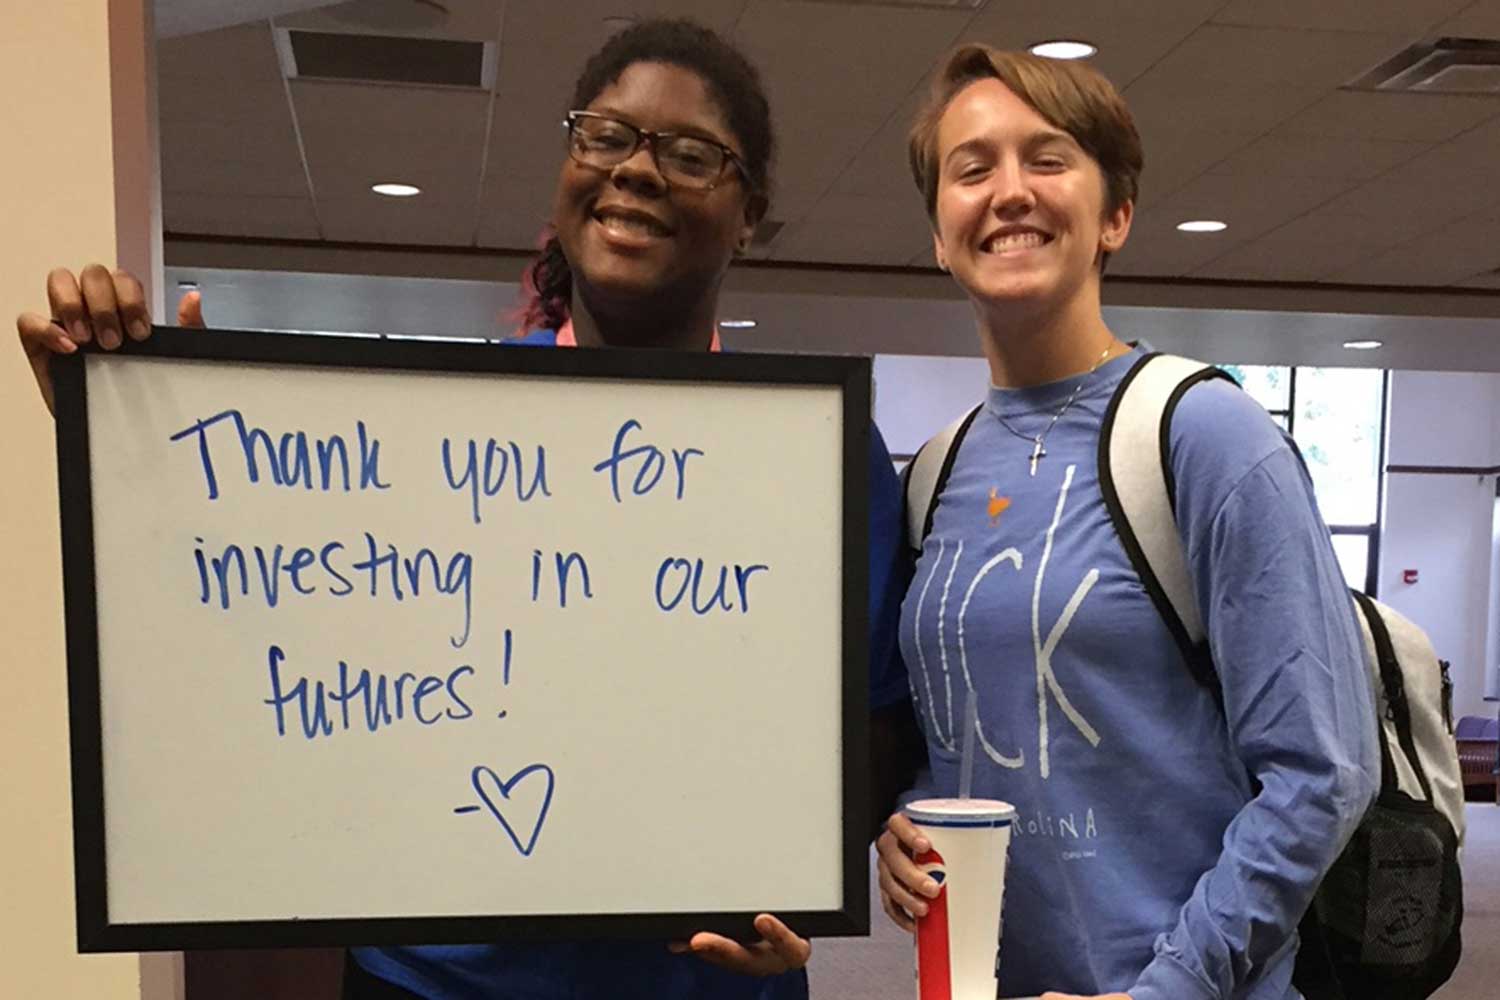 Thank you for
investing in our
futures!
-♡
uck
rolina